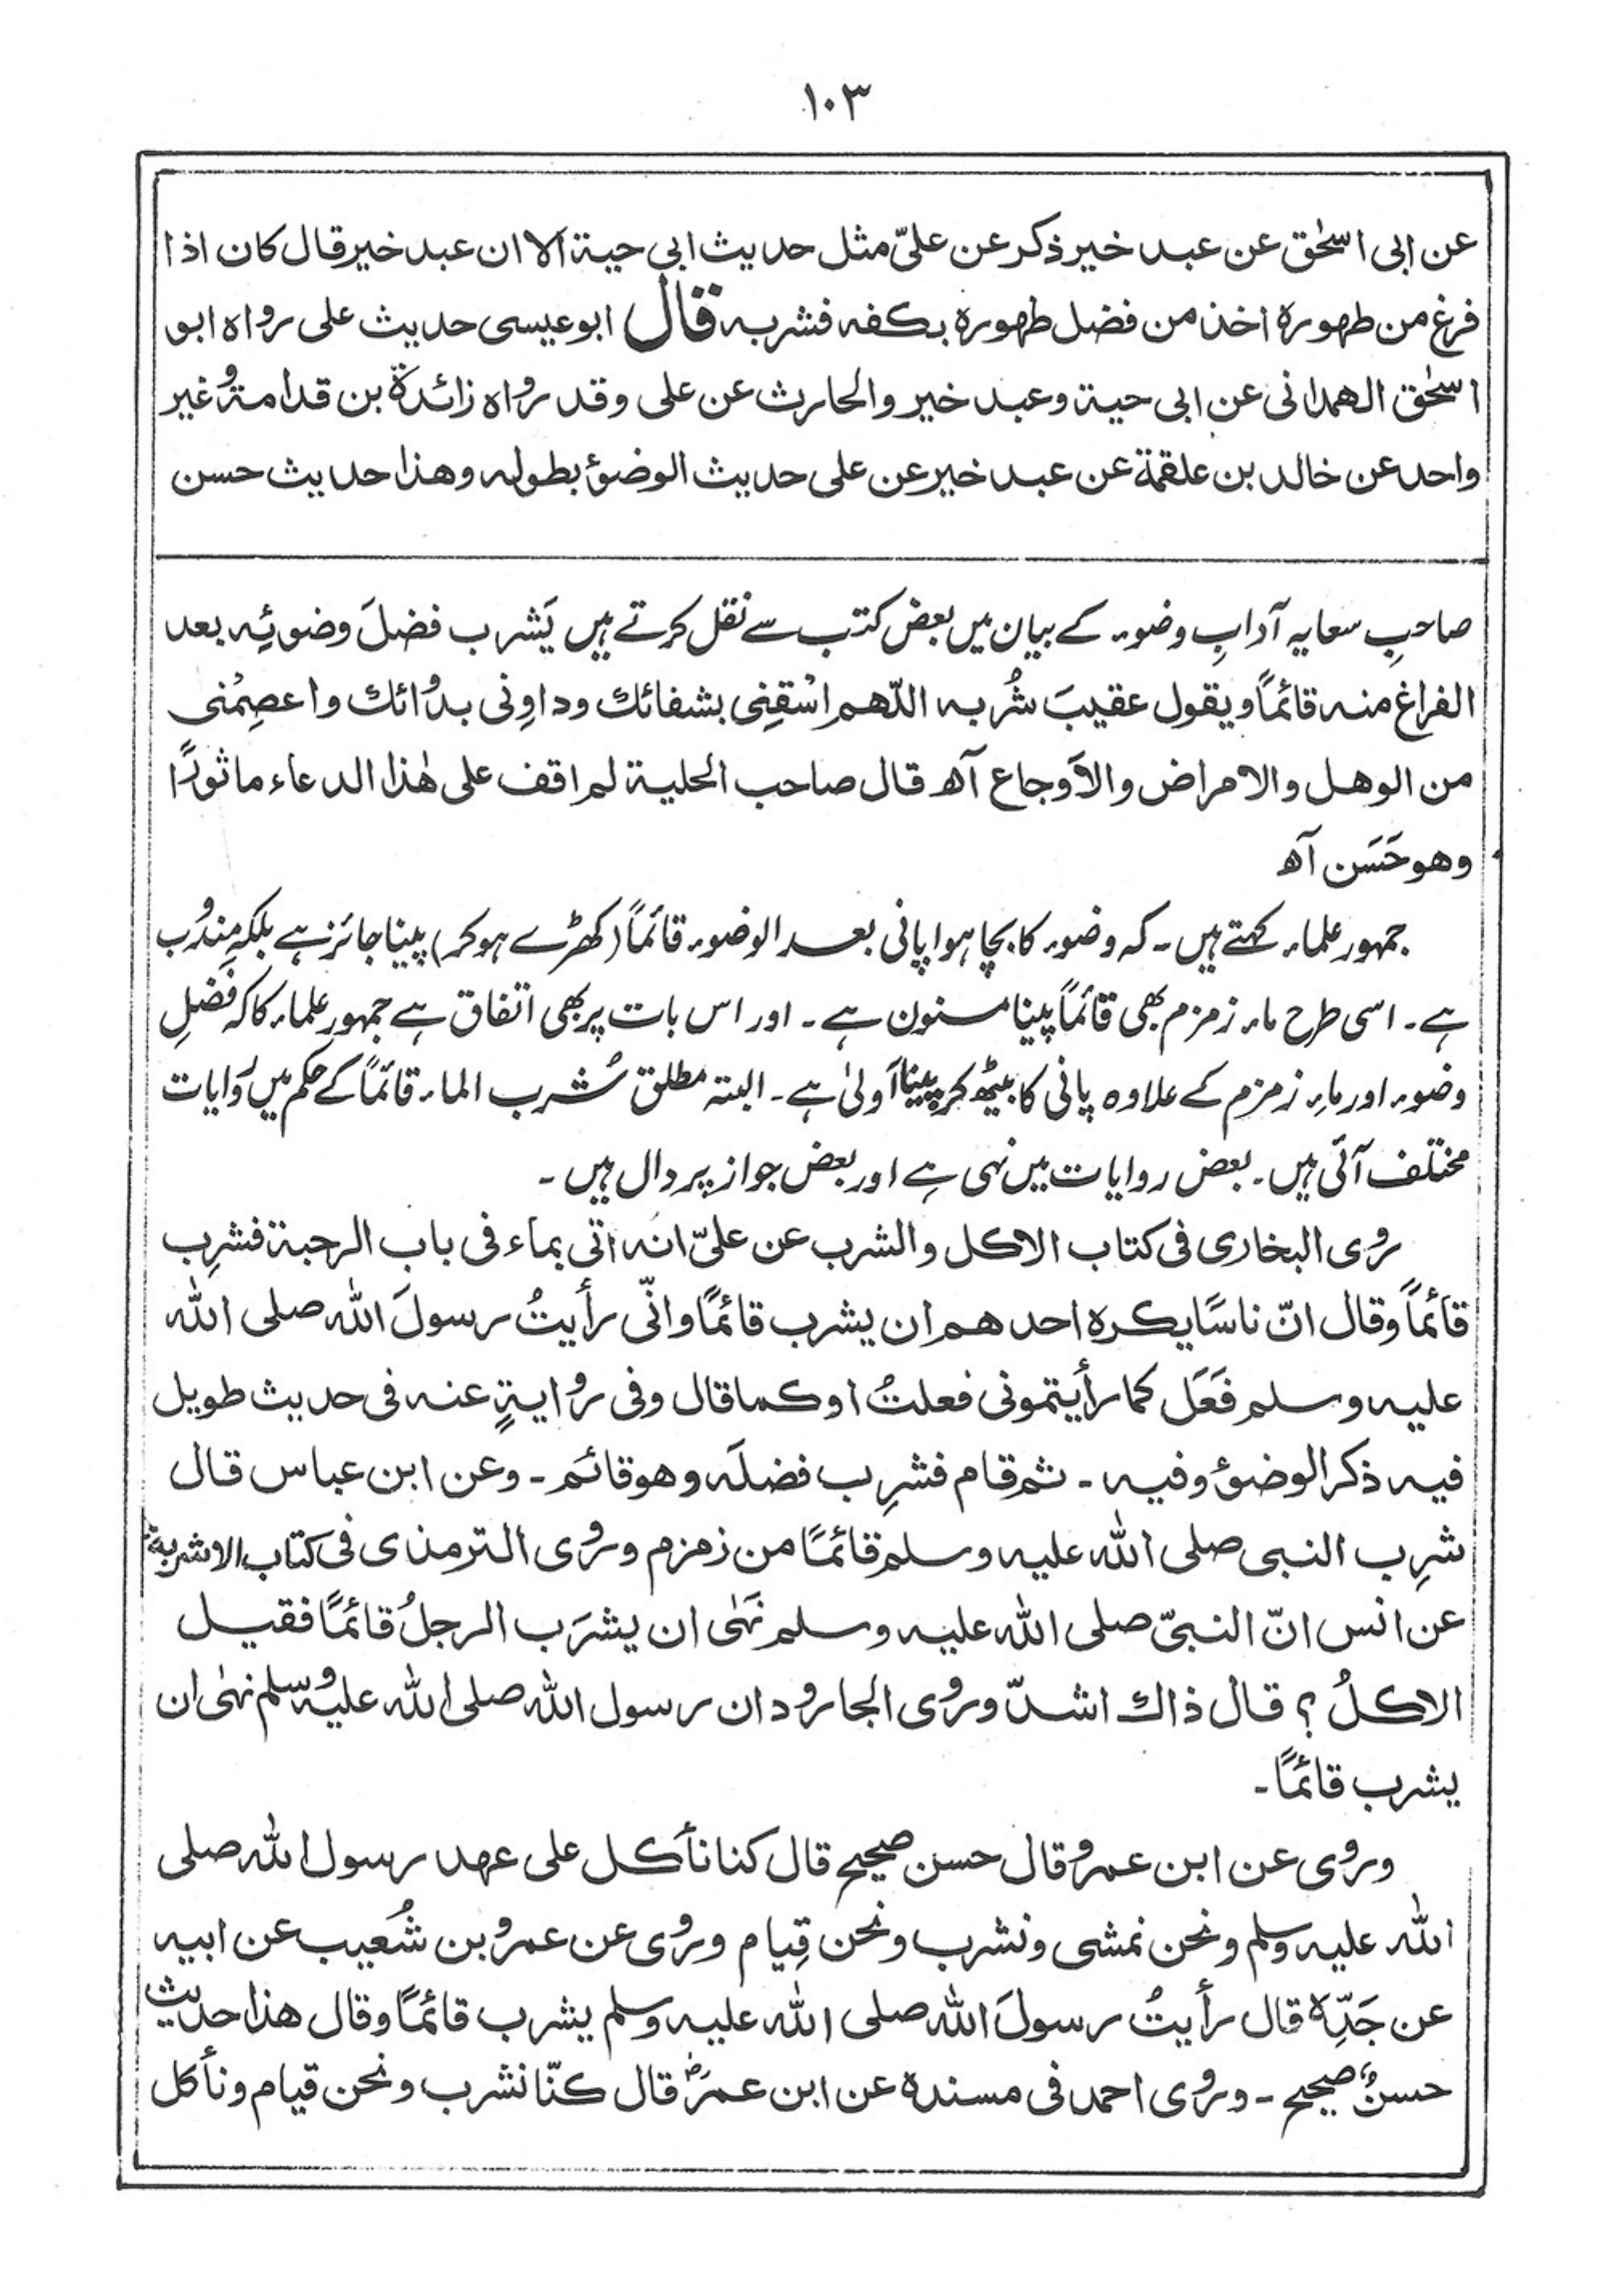 ۱۰۳
عن ابی اسحٰق عن عبد خیر ذکر عن علیّ مثل حدیث ابی حیة الا ان عبد خیر قال کان اذا
فرغ من طهورہ اخذ من فضل طهورہ بکفه فشربه قال ابوعیسی حدیث علی رواہ ابو
اسحٰق الهمدانی عن ابی حیة وعبد خیر والحارث عن علی وقد رواہ زائدة بن قدامة وغیر
واحد عن خالد بن علقمة عن عبد خیر عن علی حدیث الوضوٴ بطوله وهذا حدیث حسن
صاحبِ سعایہ آدابِ وضوء کے بیان میں بعض کتب سے نقل کرتے ہیں یَشرب فضلَ وضوئِه بعد
الفراغ منه قائمًا ویقول عقیبَ شُربه اللّٰهم اسْقِنِی بشفائك وداوِنی بدوائك واعصِمْنی
من الوهل والامراض والاَوجاع آھ قال صاحب الحلیة لم اقف علی هٰذا الدعاء ماثورًا
وهو حَسَن آھ
جمہور علماء کہتے ہیں۔ کہ وضوء کا بچا ہوا پانی بعد الوضوء قائمًا (کھڑے ہوکر) پینا جائز ہے بلکہ مندُوب
ہے۔ اسی طرح ماء زمزم بھی قائمًا پینا مسنون ہے۔ اور اس بات پر بھی اتفاق ہے جمہور علماء کا کہ فَضلِ
وضوء اور ماءِ زمزم کے علاوہ پانی کا بیٹھ کر پینا اَولیٰ ہے۔ البتہ مطلق شُرب الماء قائمًا کے حکم میں رَوایات
مختلف آئی ہیں۔ بعض روایات میں نہی ہے اور بعض جواز پر دال ہیں۔
روی البخاری فی کتاب الاکل والشرب عن علیّ انه اتی بماء فی باب الرحبة فشرِب
قائمًا وقال انّ ناسًا یکرہ احدهم ان یشرب قائمًا وانّی رأیتُ رسولَ اللّٰه صلی اللّٰه
علیه وسلم فَعَل کما رأیتمونی فعلتُ او کما قال وفی روایةٍ عنه فی حدیث طویل
فیه ذکر الوضوٴ وفیه ۔ ثم قام فشرِب فضلَه وهو قائم ۔ وعن ابن عباس قال
شرِب النبی صلی اللّٰه علیه وسلم قائمًا من زمزم وروی الترمذی فی کتاب الاشربة
عن انس انّ النبیّ صلی اللّٰه علیه وسلم نَهٰی ان یشرَب الرجلُ قائمًا فقیل
الاکلُ ؟ قال ذاك اشدّ وروی الجارود ان رسول اللّٰه صلی اللّٰه علیه وسلم نهٰی ان
یشرب قائمًا ۔
وروی عن ابن عمر وقال حسن صحیح قال کنا نأکل علی عهد رسول اللّٰه صلی
اللّٰه علیه وسلم ونحن نمشی ونشرب ونحن قِیام وروی عن عمرو بن شُعیب عن ابیه
عن جَدِّہ قال رأیتُ رسولَ اللّٰه صلی اللّٰه علیه وسلم یشرب قائمًا وقال هذا حدیث
حسنٌ صحیح ۔ وروی احمد فی مسندہ عن ابن عمرَؓ قال کنّا نشرب ونحن قیام ونأکل